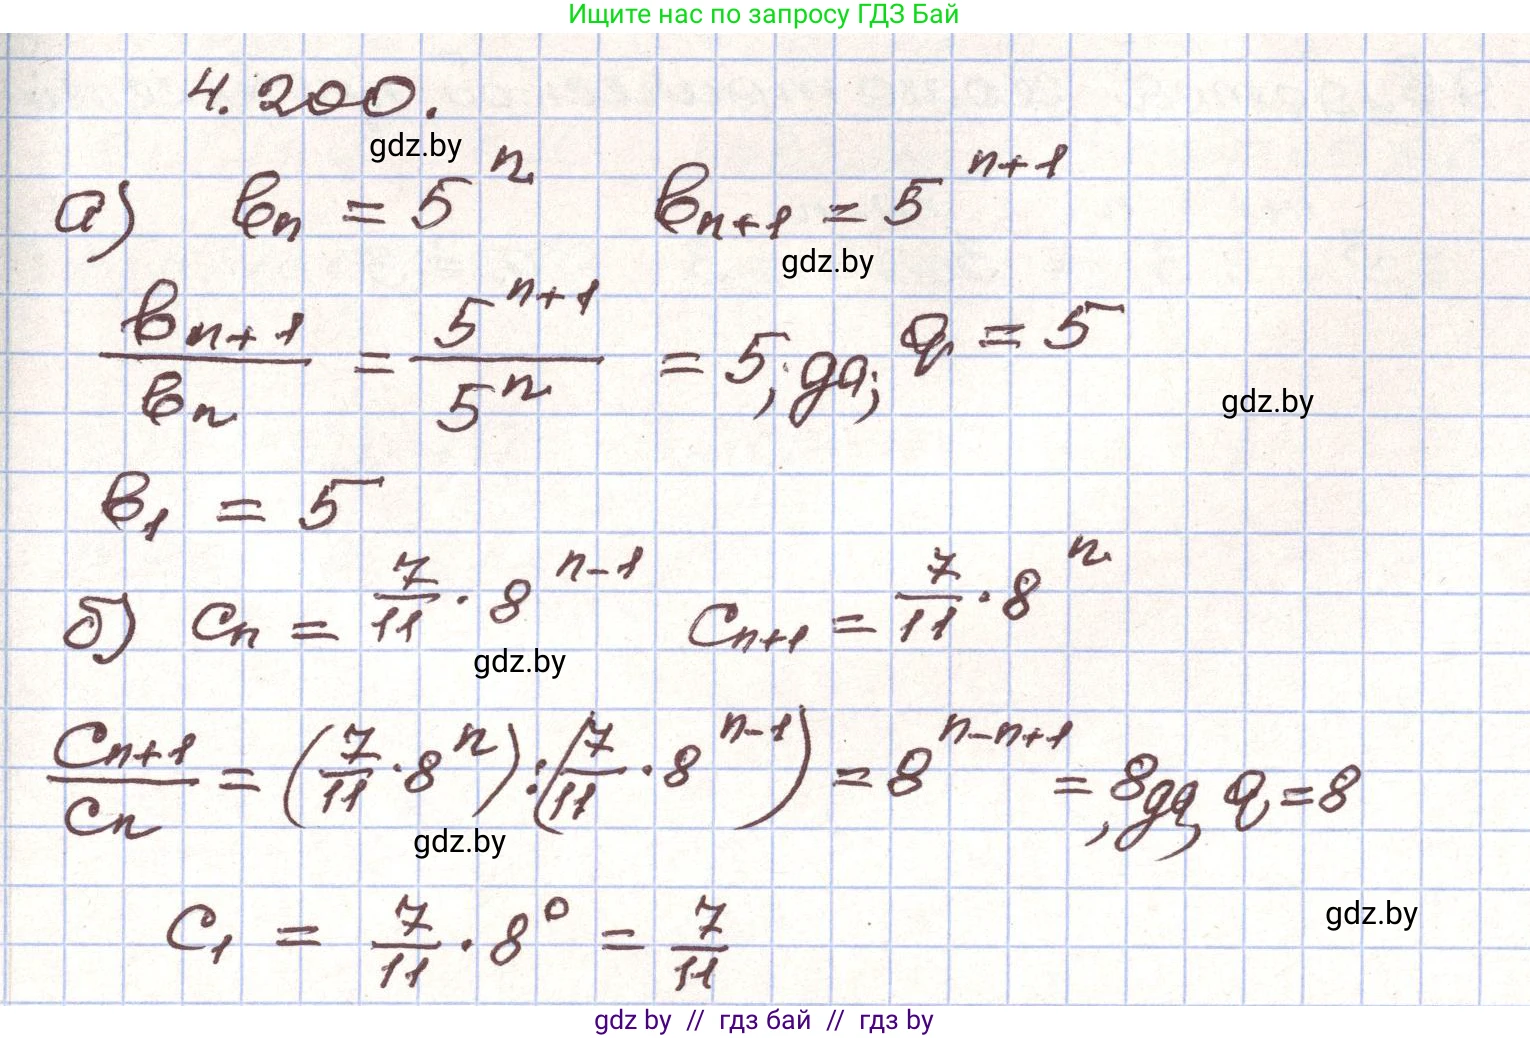 Ищите нас по запросу ГДЗ Бай
4.200.
gdz.by
а) bₙ = 5ⁿ bₙ₊₁ = 5ⁿ⁺¹
gdz.by
bₙ₊₁/bₙ = 5ⁿ⁺¹/5ⁿ = 5, да; q = 5
gdz.by
b₁ = 5
б) cₙ = 7/11 · 8ⁿ⁻¹ cₙ₊₁ = 7/11 · 8ⁿ
gdz.by
cₙ₊₁/cₙ = (7/11 · 8ⁿ) : (7/11 · 8ⁿ⁻¹) = 8ⁿ⁻ⁿ⁺¹ = 8, да, q = 8
gdz.by
c₁ = 7/11 · 8⁰ = 7/11
gdz.by
gdz by // гдз бай // гдз by